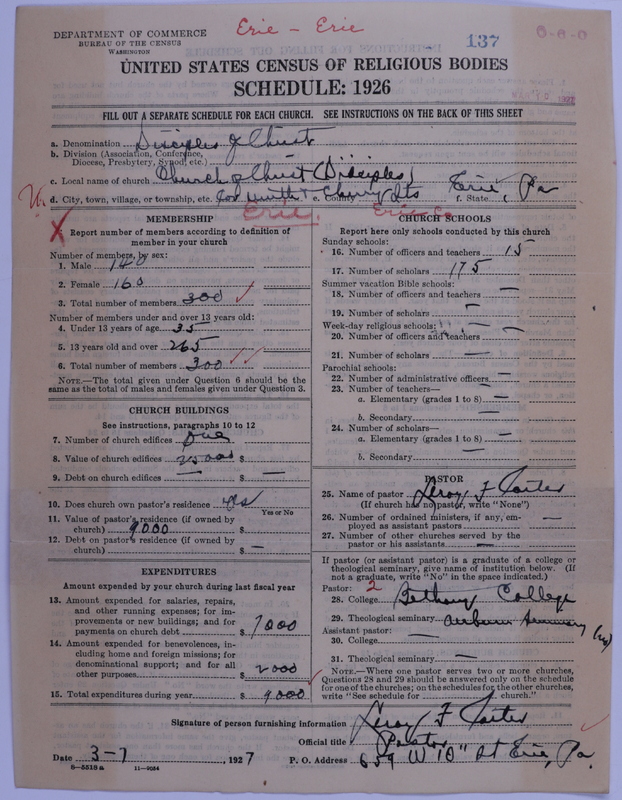 Erie - Erie
DEPARTMENT OF COMMERCE
BUREAU OF THE CENSUS
WASHINGTON
137
0-0-0
UNITED STATES CENSUS OF RELIGIOUS BODIES
SCHEDULE: 1926
FILL OUT A SEPARATE SCHEDULE FOR EACH CHURCH. SEE INSTRUCTIONS ON THE BACK OF THIS SHEET
a. Denomination Disciples of Christ
b. Division (Association, Conference, Diocese, Presbytery, Synod, etc.)
c. Local name of church Church of Christ (Disciples)
d. City, town, village, or township, etc. Cor ninth & Cherry Sts e. County Erie f. State Pa
Erie. Erie Co
MEMBERSHIP
X Report number of members according to definition of member in your church
Number of members, by sex:
1. Male 140
2. Female 160
3. Total number of members 300
Number of members under and over 13 years old:
4. Under 13 years of age 35
5. 13 years old and over 265
6. Total number of members 300
NOTE.—The total given under Question 6 should be the same as the total of males and females given under Question 3.
CHURCH BUILDINGS
See instructions, paragraphs 10 to 12
7. Number of church edifices One
8. Value of church edifices 25000 $
9. Debt on church edifices — $ —
10. Does church own pastor's residence yes
Yes or No
11. Value of pastor's residence (if owned by church) 9,000 $
12. Debt on pastor's residence (if owned by church) $ —
EXPENDITURES
Amount expended by your church during last fiscal year
13. Amount expended for salaries, repairs, and other running expenses; for improvements or new buildings; and for payments on church debt $ 7000
14. Amount expended for benevolences, including home and foreign missions; for denominational support; and for all other purposes $ 2000
15. Total expenditures during year $ 9,000
CHURCH SCHOOLS
Report here only schools conducted by this church
Sunday schools:
16. Number of officers and teachers 15
17. Number of scholars 175
Summer vacation Bible schools:
18. Number of officers and teachers —
19. Number of scholars —
Week-day religious schools:
20. Number of officers and teachers —
21. Number of scholars —
Parochial schools:
22. Number of administrative officers —
23. Number of teachers—
a. Elementary (grades 1 to 8) —
b. Secondary —
24. Number of scholars—
a. Elementary (grades 1 to 8) —
b. Secondary —
PASTOR
25. Name of pastor Leroy F Porter
(If church has no pastor, write "None")
26. Number of ordained ministers, if any, employed as assistants to pastor —
27. Number of other churches served by the pastor or his assistants —
If pastor (or assistant pastor) is a graduate of a college or theological seminary, give name of institution below. (If not a graduate, write "No" in the space indicated.)
Pastor: 2
28. College Bethany College
29. Theological seminary Auburn Seminary
Assistant pastor:
30. College —
31. Theological seminary —
NOTE.—Where one pastor serves two or more churches, Questions 28 and 29 should be answered only on the schedule for one of the churches; on the schedules for the other churches, write "See schedule for church."
Signature of person furnishing information Leroy F Porter
Official title Pastor
Date 3-7, 1927 P. O. Address 659 W 10" St Erie, Pa.
8-5518a 11-9054